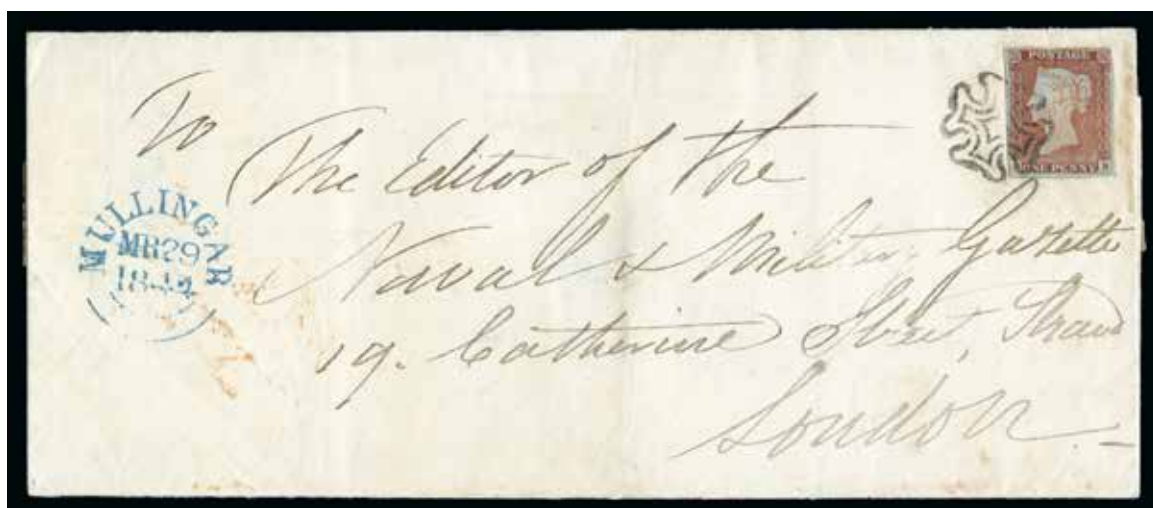 POSTAGE
ONE PENNY
To
The Editor of the
Naval & Military Gazette
19. Catherine Street, Strand
London.
MULLINGAR
MR29
1844